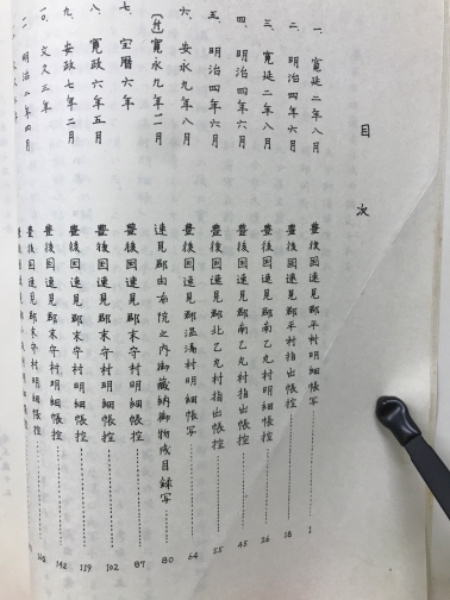 目次
一、寛延二年八月 豊後国速見郡平村明細帳写 1
二、明治四年六月 豊後国速見郡平村指出帳控 18
三、寛延二年八月 豊後国速見郡南乙丸村明細帳控 26
四、明治四年六月 豊後国速見郡南乙丸村指出帳控 45
五、明治四年六月 豊後国速見郡北乙丸村指出帳控 55
六、安永九年八月 豊後国速見郡温湯村明細帳写 64
(付)寛永九年一一月 速見郡由布院之内御蔵納御物成目録写 80
七、宝暦六年 豊後国速見郡末守村明細帳控 87
八、寛政六年五月 豊後国速見郡末守村明細帳控 102
九、安政七年二月 豊後国速見郡末守村明細帳控 119
一〇、文久三年 豊後国速見郡末守村明細帳控 142
明治二年四月 豊後国速見郡末守村明細帳控